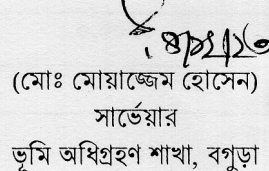 (মোঃ মোয়াজ্জেম হোসেন)
সার্ভেয়ার
ভূমি অধিগ্রহণ শাখা, বগুড়া